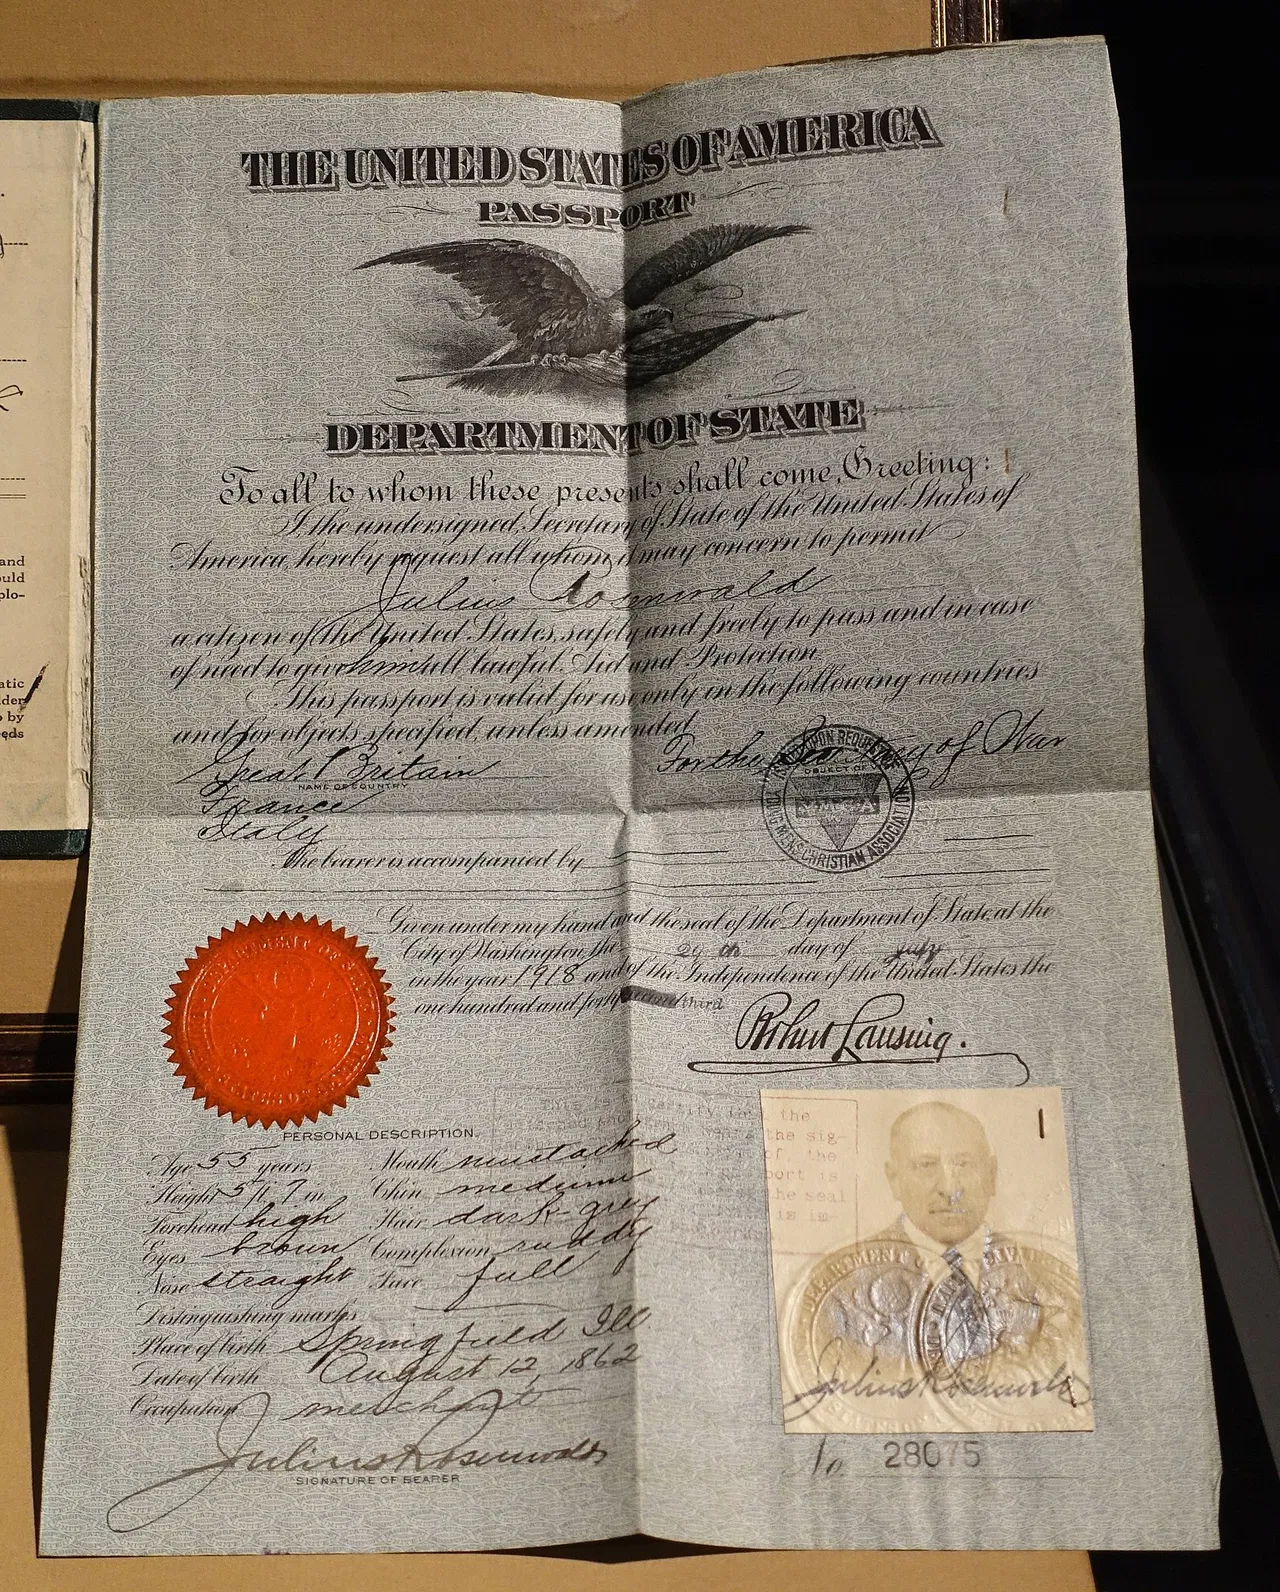 THE UNITED STATES OF AMERICA
PASSPORT
DEPARTMENT OF STATE
To all to whom these presents shall come, Greeting:
I, the undersigned, Secretary of State of the United States of
America, hereby request all whom it may concern to permit
Julius Rosenwald
a citizen of the United States, safely and freely to pass and in case
of need to give him all lawful Aid and Protection
This passport is valid for use only in the following countries
and for objects specified, unless amended
Great Britain For the Secretary of War
NAME OF COUNTRY OBJECT OF
France
Italy
UPON REQUEST
MENS CHRISTIAN ASSOCIATION
The bearer is accompanied by
Given under my hand and the seal of the Department of State at the
City of Washington, the 29 th day of July
in the year 1918 and of the Independence of the United States the
one hundred and forty third
Robert Lansing.
PERSONAL DESCRIPTION.
Age 55 years Mouth mustached
Height 5 ft. 7 in. Chin medium
Forehead high Hair dark-grey
Eyes brown Complexion ruddy
Nose straight Face full
Distinguishing marks
Place of birth Springfield Ill
Date of birth August 12, 1862
Occupation merchant
Julius Rosenwald
SIGNATURE OF BEARER
the
the sig-
of, the
port is
the seal
is im-
Julius Rosenwald
No. 28075
and
ould
plo-
atic
der
by
eds